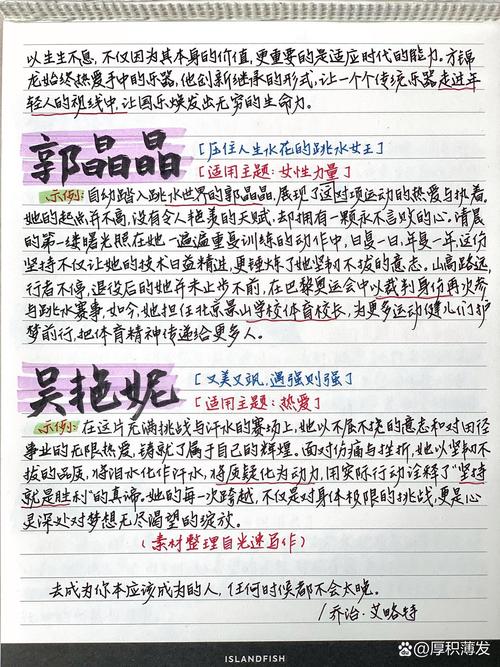 以生生不息，不仅因为其本身的价值，更重要的是适应时代的能力。方锦
龙始终热爱手中的乐器，他创新继承的形式，让一个个传统乐器走进年
轻人的视线中，让国乐焕发出无穷的生命力。
郭晶晶
[压住人生水花的跳水女王]
[适用主题：女性力量]
示例：自幼踏入跳水世界的郭晶晶，展现了这对项运动的热爱与执着。
她的起点并不高，没有令人艳羡的天赋，却拥有一颗永不言败的心。清晨
的第一缕曙光照在她一遍遍重复训练的动作中，日复一日，年复一年，这份
坚持不仅让她的技术日益精进，更锤炼了她坚韧不拔的意志。山高路远，
行者不停，退役后的她并未止步不前，在巴黎奥运会中以裁判身份再次参
与跳水赛事，如今，她担任北京景山学校体育校长，为更多运动健儿们护
梦前行，把体育精神传递给更多人。
吴艳妮
[又美又飒，遇强则强]
[适用主题：热爱]
示例：在这片充满挑战与汗水的赛场上，她以不屈不挠的意志和对田径
事业的无限热爱，铸就了属于自己的辉煌。面对伤痛与挫折，她以坚韧不
拔的品质，将泪水化作汗水，将质疑化为动力，用实际行动诠释了“坚持
就是胜利”的真谛。她的每一次跨越，不仅是对身体极限的挑战，更是心
灵深处对梦想无尽渴望的绽放。
（素材整理自光速写作）
去成为你本应该成为的人，任何时候都不会太晚。
/乔治·艾略特
ISLANDFISH
@厚积薄发